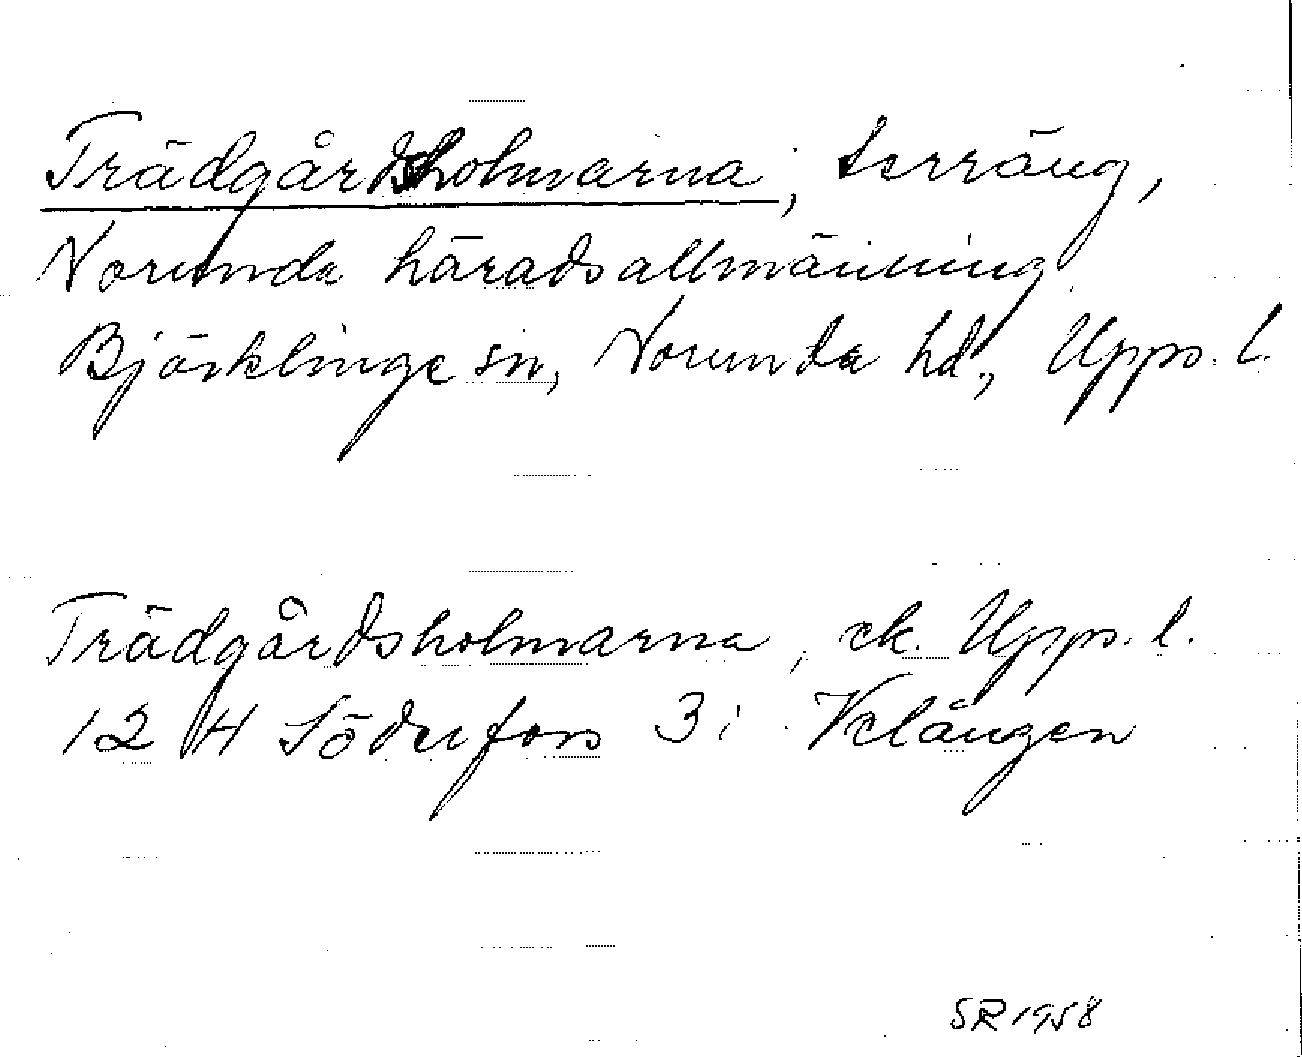 Trädgårdsholmarna, terräng,
Norunda häradsallmänning
Björklinge sn, Norunda hd., Upps. l.
Trädgårdsholmarna, ek. Upps. l.
12 H Söderfors 3i Velängen
SR 1958